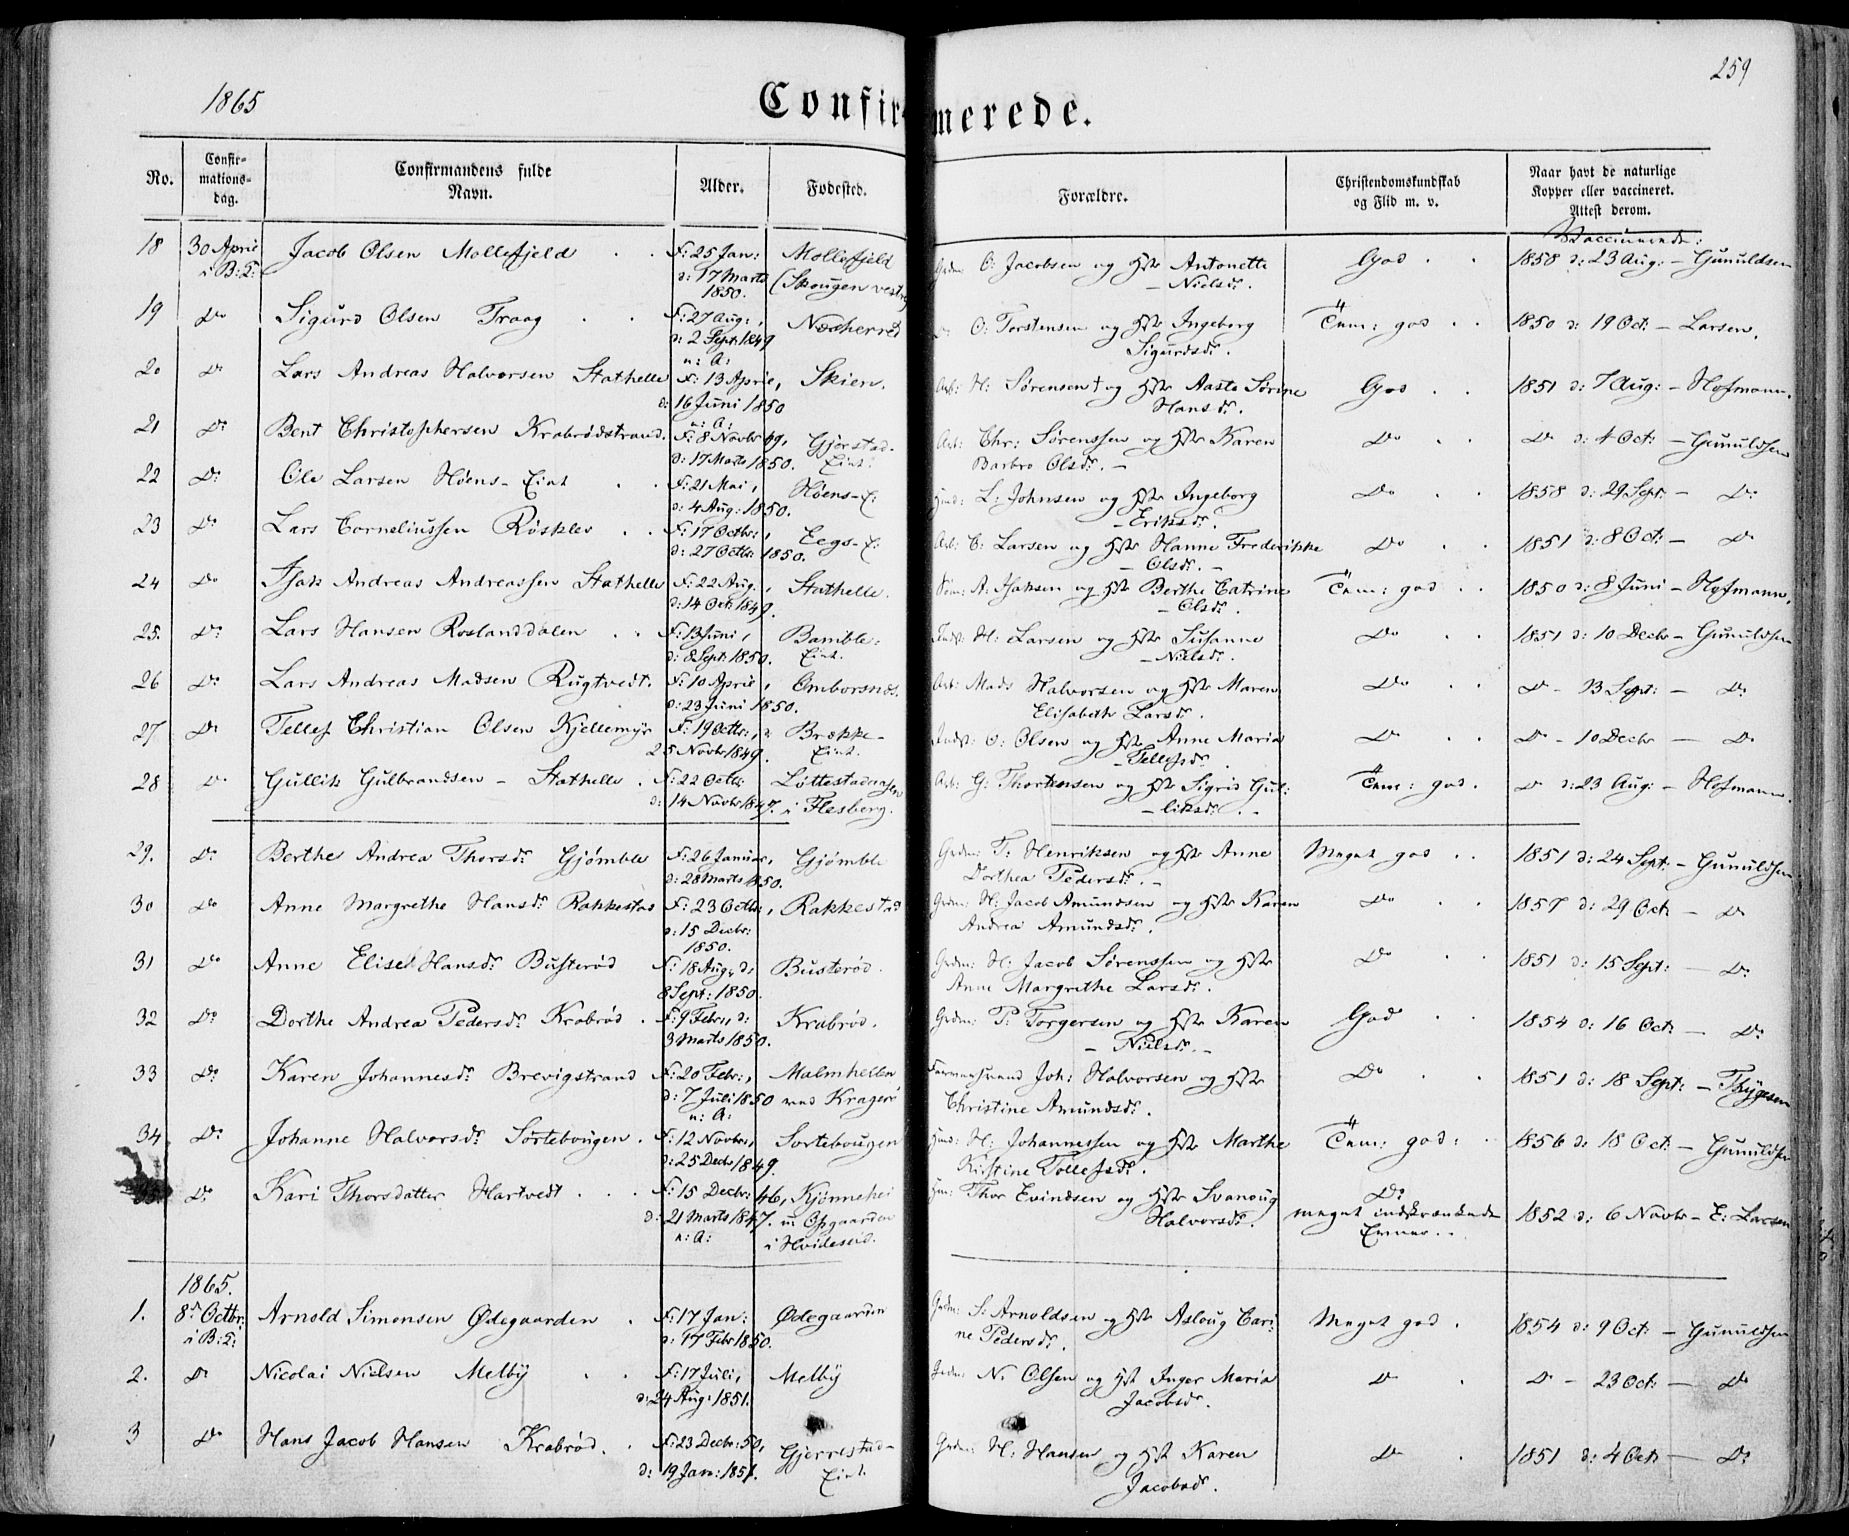 1865
259
Confirmerede.
No. | Confirmationsdag. | Confirmandens fulde Navn. | Alder. | Fødested. | Forældre. | Christendomskundskab og Flid m. v. | Naar havt de naturlige Kopper eller vaccineret. Attest derom.
Vaccinerede:
18 | 30 April i B: K: | Jacob Olsen Mollefjeld | F: 25 Jan: d: 17 Marts 1850. | Mollefjeld (Skougen vestre | Grdm: O: Jacobsen og Hstr Antonette Nielsdr. | God | 1858 d: 23 Aug: – Gunuldsen
19 | Do | Sigurd Olsen Traag | F: 27 Aug:, d: 2 Sept: 1849 n: A: | | Do O: Torstensen og Hstr Ingeborg Sigurdsdr. | Tem: god | 1850 d: 19 Oct: – Larsen.
20 | Do | Lars Andreas Halvorsen Stathelle | F: 13 April, d: 16 Juni 1850 n: A: | Skien. | Arb: H: Sørensen † og Hstr Aaste Sørine Hansdr. | God | 1851 d: 7 Aug: – Hofmann.
21 | Do | Bent Christophersen Krabrødstrand. | F: 8 Novbr 49, d: 17 Marts 1850. | Gjerstad-Eiet. | Arb: Chr: Sørenssen og Hstr Karen Barbro Olsdr. – | Do | Do d: 4 Oct: – Gunuldsen
22 | Do | Ole Larsen Høens-Eiet | F: 21 Mai, d: 4 Aug: 1850. | Høens-E: | Huusm: L: Johnsen og Hstr Ingeborg Eriksdr. | Do | 1858 d: 29 Sept: – Do
23 | Do | Lars Corneliussen Røsklev | F: 17 Octbr:, d: 27 Octbr: 1850. | Eegs-E: | Arb: C: Larsen og Hstr Hanne Frederikke Olsdr. – | Do | 1851 d: 8 Oct: – Do
24 | Do | Isak Andreas Andreassen Stathelle | F: 22 Aug:, d: 14 Oct: 1849. | Stathelle. | Søm: A. Isaksen og Hstr Berthe Catrine Olsdr. | Tem: god | 1850 d: 8 Juni – Hofmann.
25. | Do | Lars Hansen Roslanddalen | F: 13 Juni, d: 8 Sept: 1850. | Bamble: Eiet. | Indst: H: Larsen og Hstr Susanne Nielsdr. | Do | 1851 d: 10 Decbr – Gunuldsen
26 | Do | Lars Andreas Madsen Rugtvedt. | F: 10 April, d: 23 Juni 1850. | Omborsnes. | Arb: Mads Halvorsen og Hstr Maren Elisabeth Larsdr. | Do | Do – 13 Sept: – Do
27 | Do | Tellef Christian Olsen Kjellemyr | F: 19 Octbr:, d: 25 Novbr 1849. | Brække-Eiet. | Indst: O: Olsen og Hstr Anne Maria Tellefsdr. | Do | Do – 10 Decbr – Do
28 | Do | Gullik Gulbrandsen – Stathelle. | F: 22 Octbr: d: 14 Novbr 1847. | i Flesberg. | Arb: G: Thortensen og Hstr Sigrid Gulliksdr. – | Tem: god. | Do d: 23 Aug: – Hofmann.
29. | Do | Berthe Andrea Thorsdr. Gjømble | F: 26 Januar, d: 28 Marts 1850. | Gjømble | Grdm: T: Henriksen og Hstr Anne Dorthea Pedersdr. – | Meget god | 1851 d: 24 Sept: – Gunuldsen
30 | Do | Anne Margrethe Hansdr. Rakkestad | F: 23 Octbr:, d: 15 Decbr: 1850. | Rakkestad | Grdm: H: Jacob Amundsen og Hstr Karen Andrea Amundsdr. | Do | 1857 d: 29 Oct: – Do
31 | Do | Anne Elise Hansdr. Busterød | F: 18 Aug, d: 8 Sept: 1850. | Busterød. | Grdm: H: Jacob Sørenssen og Hstr Anne Margrethe Larsdr. | Do | 1851 d: 15 Sept: – Do
32 | Do | Dorthe Andrea Pedersdr. Krabrød. | F: 9 Febr:, d: 3 Marts 1850. | Krabrød. | Grdm: P: Torgersen og Hstr Karen Nielsdr. – | God | 1854 d: 16 Oct: – Do
33 | Do | Karen Johannesdr. Brevigstrand | F: 20 Febr:, d: 7 Juli 1850 n: A: | Malmhellen ved Kragerø | Joh: Halvorsen og Hstr Christine Amundsdr. | Do | 1851 d: 18 Sept: – Thygesen
34 | Do | Johanne Halvorsdr. Sortebougen. | F: 12 Novbr:, d: 25 Decbr 1849. | Sortebougen | Huusm: H: Johannessen og Hstr Marthe Kirstine Tollefsdr. | Tem: god: | 1856 d: 18 Oct: – Gunuldsen
35. | Do | Kari Thorsdatter Hartvedt | F: 15 Decbr: 46, d: 21 Marts 1847. n: A: | Kjønnehei u: Opgaarden i Hvideseid. | Huusm: Thor Evindsen og Hstr Svanoug Halvorsdr. | Do meget indskrænkede Evner. | 1852 d: 6 Novbr – E: Larsen
1865.
1. | 8de Octbr. i B: K: | Arnold Simonsen Ødegaarden | F: 17 Jan: d: 17 Febr 1850. | Ødegaarden | Grdm: S: Arnoldsen og Hstr Asloug Carine Pedersdr. | Meget god. | 1854 d: 9 Oct: – Gunuldsen
2. | Do | Nicolai Nielsen Melby | F: 17 Juli, d: 24 Aug: 1851. | Melby | Grdm: N. Olsen og Hst Inger Maria Jacobsdr. | Do | Do – 23 Oct: – Do
3 | Do | Hans Jacob Hansen Krabrød. | F: 23 Decbr: 50, d: 19 Jan: 1851. | Gjerrestad-Eiet. | Grdm: H: Hansen og Hst Karen Jacobsdr. | Do | 1851 d: 4 Oct: – Do